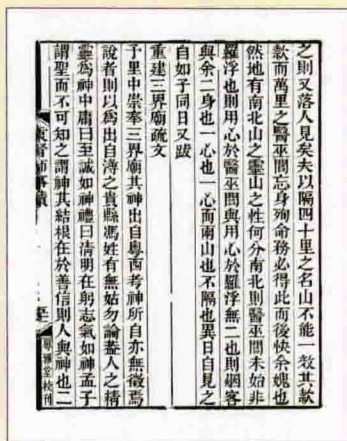 之則又落人見矣夫以隔四十里之名山不能一致其款
款而萬里之醫巫閭忘身殉命務必得此而後快余媿也
然地有南北山之靈山之性何分南北則醫巫閭未始非
羅浮也則用心於醫巫閭與用心於羅浮無二也則烟客
與余二身也一心也一心而兩山也不隔也異日自見之
自如子同日又跋
重建三界廟疏文
予里中崇奉三界廟其神出自粵西考神所自亦無徵焉
說者則以為出自潯之貴縣馮姓有無姑勿論蓋人之精
靈為神中庸曰至誠如神禮曰清明在躬志氣如神孟子
謂聖而不可知之謂神其結根在於善信則人與神也二
粵雅堂校刊